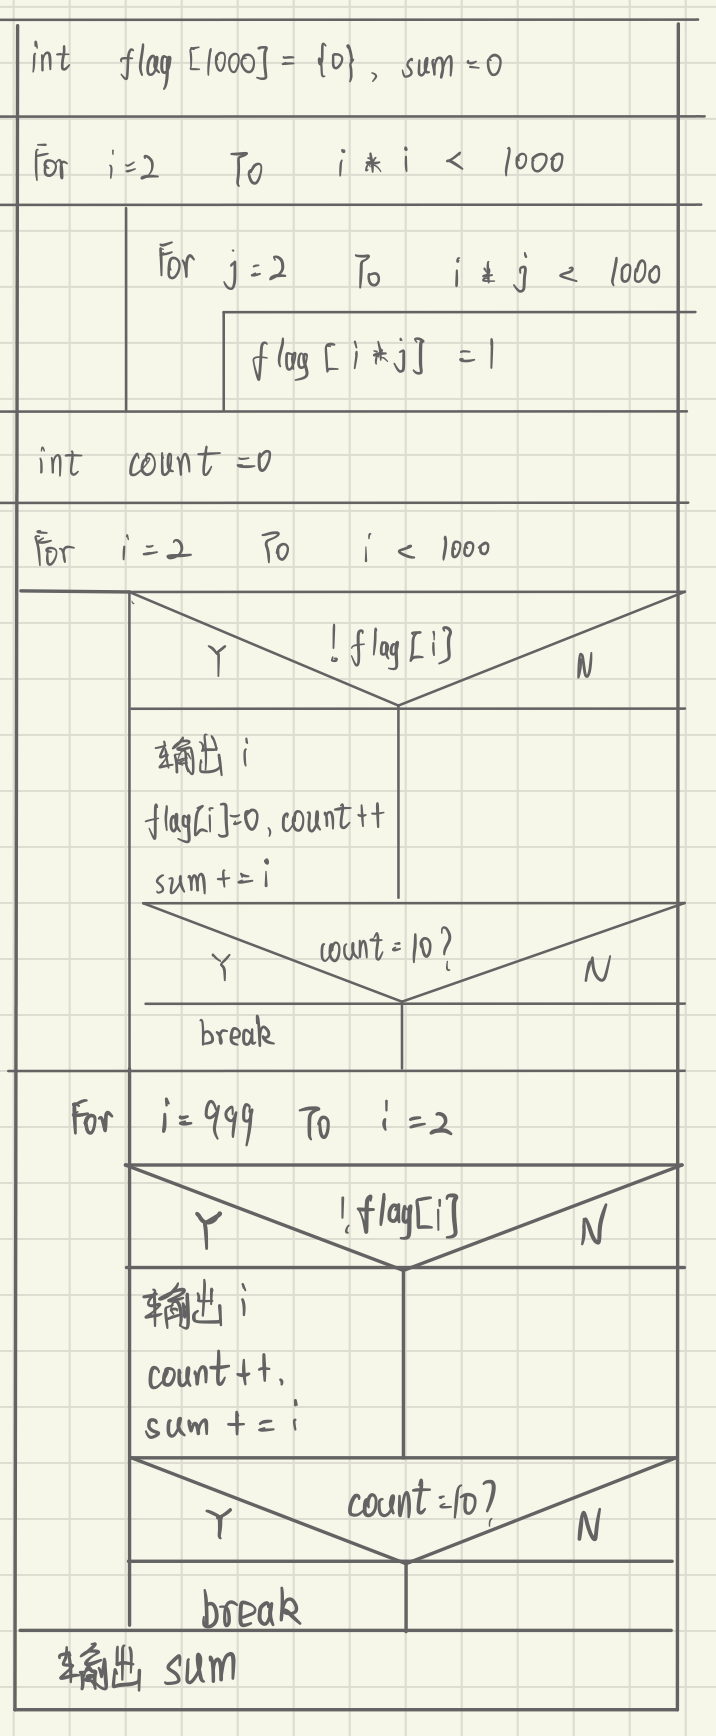 int flag [1000] = {0}, sum=0
For i=2 To i * i < 1000
For j=2 To i * j < 1000
flag [i*j] =1
int count =0
For i=2 To i < 1000
! flag [i]
Y N
输出 i
flag[i]=0, count++
sum += i
count=10?
Y N
break
For i=999 To i=2
!flag[i]
Y N
输出 i
count++.
sum += i
count=10?
Y N
break
输出 sum